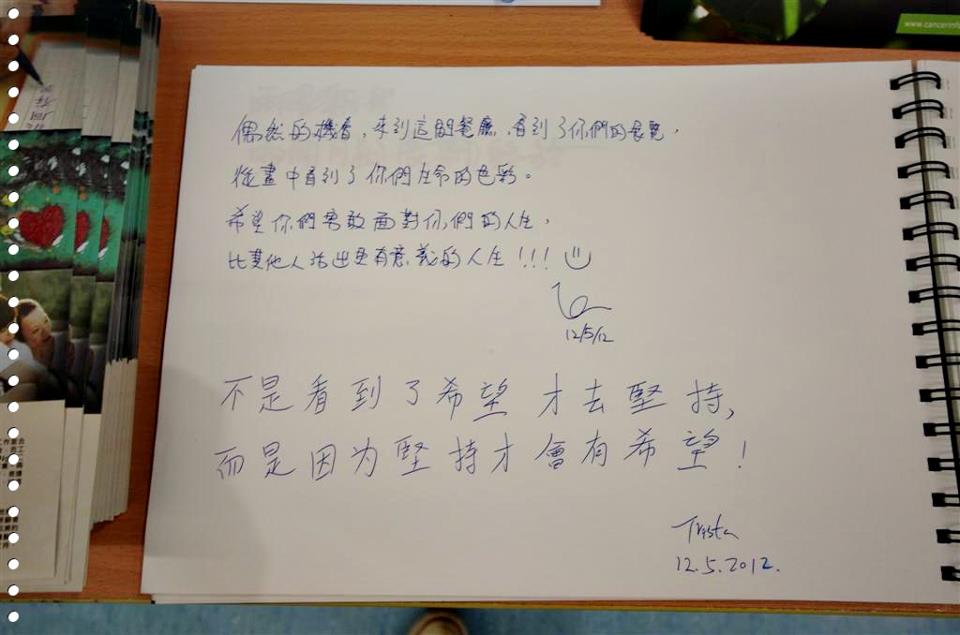 www.cancerinf
偶然的機會，來到這間餐廳，看到了你們的展覽，
從畫中看到了你們生命的色彩。
希望你們勇敢面對你們的人生，
比其他人活出更有意義的人生！！！
12/5/12
不是看到了希望才去堅持，
而是因为堅持才會有希望！
Trista
12.5.2012.